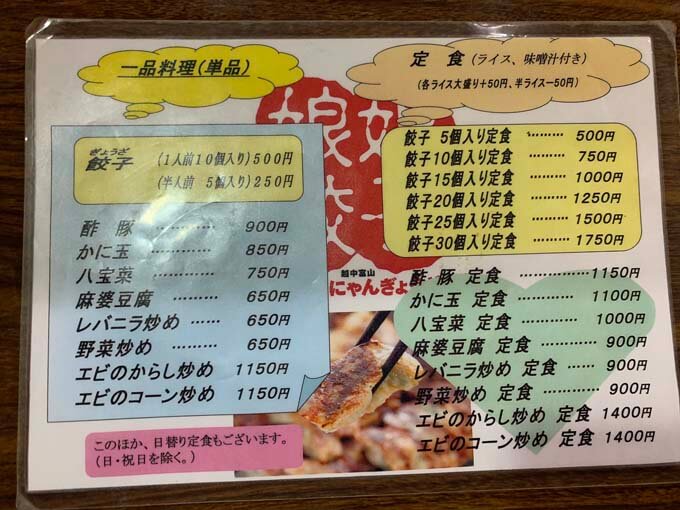 一品料理(単品)
ぎょうざ
餃子 (1人前10個入り)500円
(半人前 5個入り)250円
酢 豚 ………… 900円
かに玉 ………… 850円
八宝菜 ………… 750円
麻婆豆腐 ……… 650円
レバニラ炒め …… 650円
野菜炒め ……… 650円
エビのからし炒め 1150円
エビのコーン炒め 1150円
このほか、日替り定食もございます。
(日・祝日を除く。)
越中富山
にゃんぎょ
定 食 (ライス、味噌汁付き)
(各ライス大盛り+50円、半ライスー50円)
餃子 5個入り定食 ……… 500円
餃子10個入り定食 ……… 750円
餃子15個入り定食 ……… 1000円
餃子20個入り定食 ……… 1250円
餃子25個入り定食 ……… 1500円
餃子30個入り定食 ……… 1750円
酢 豚 定食 …………1150円
かに玉 定食 ………… 1100円
八宝菜 定食 ………… 1000円
麻婆豆腐 定食 ……… 900円
レバニラ炒め 定食 …… 900円
野菜炒め 定食 ……… 900円
エビのからし炒め 定食 1400円
エビのコーン炒め 定食 1400円